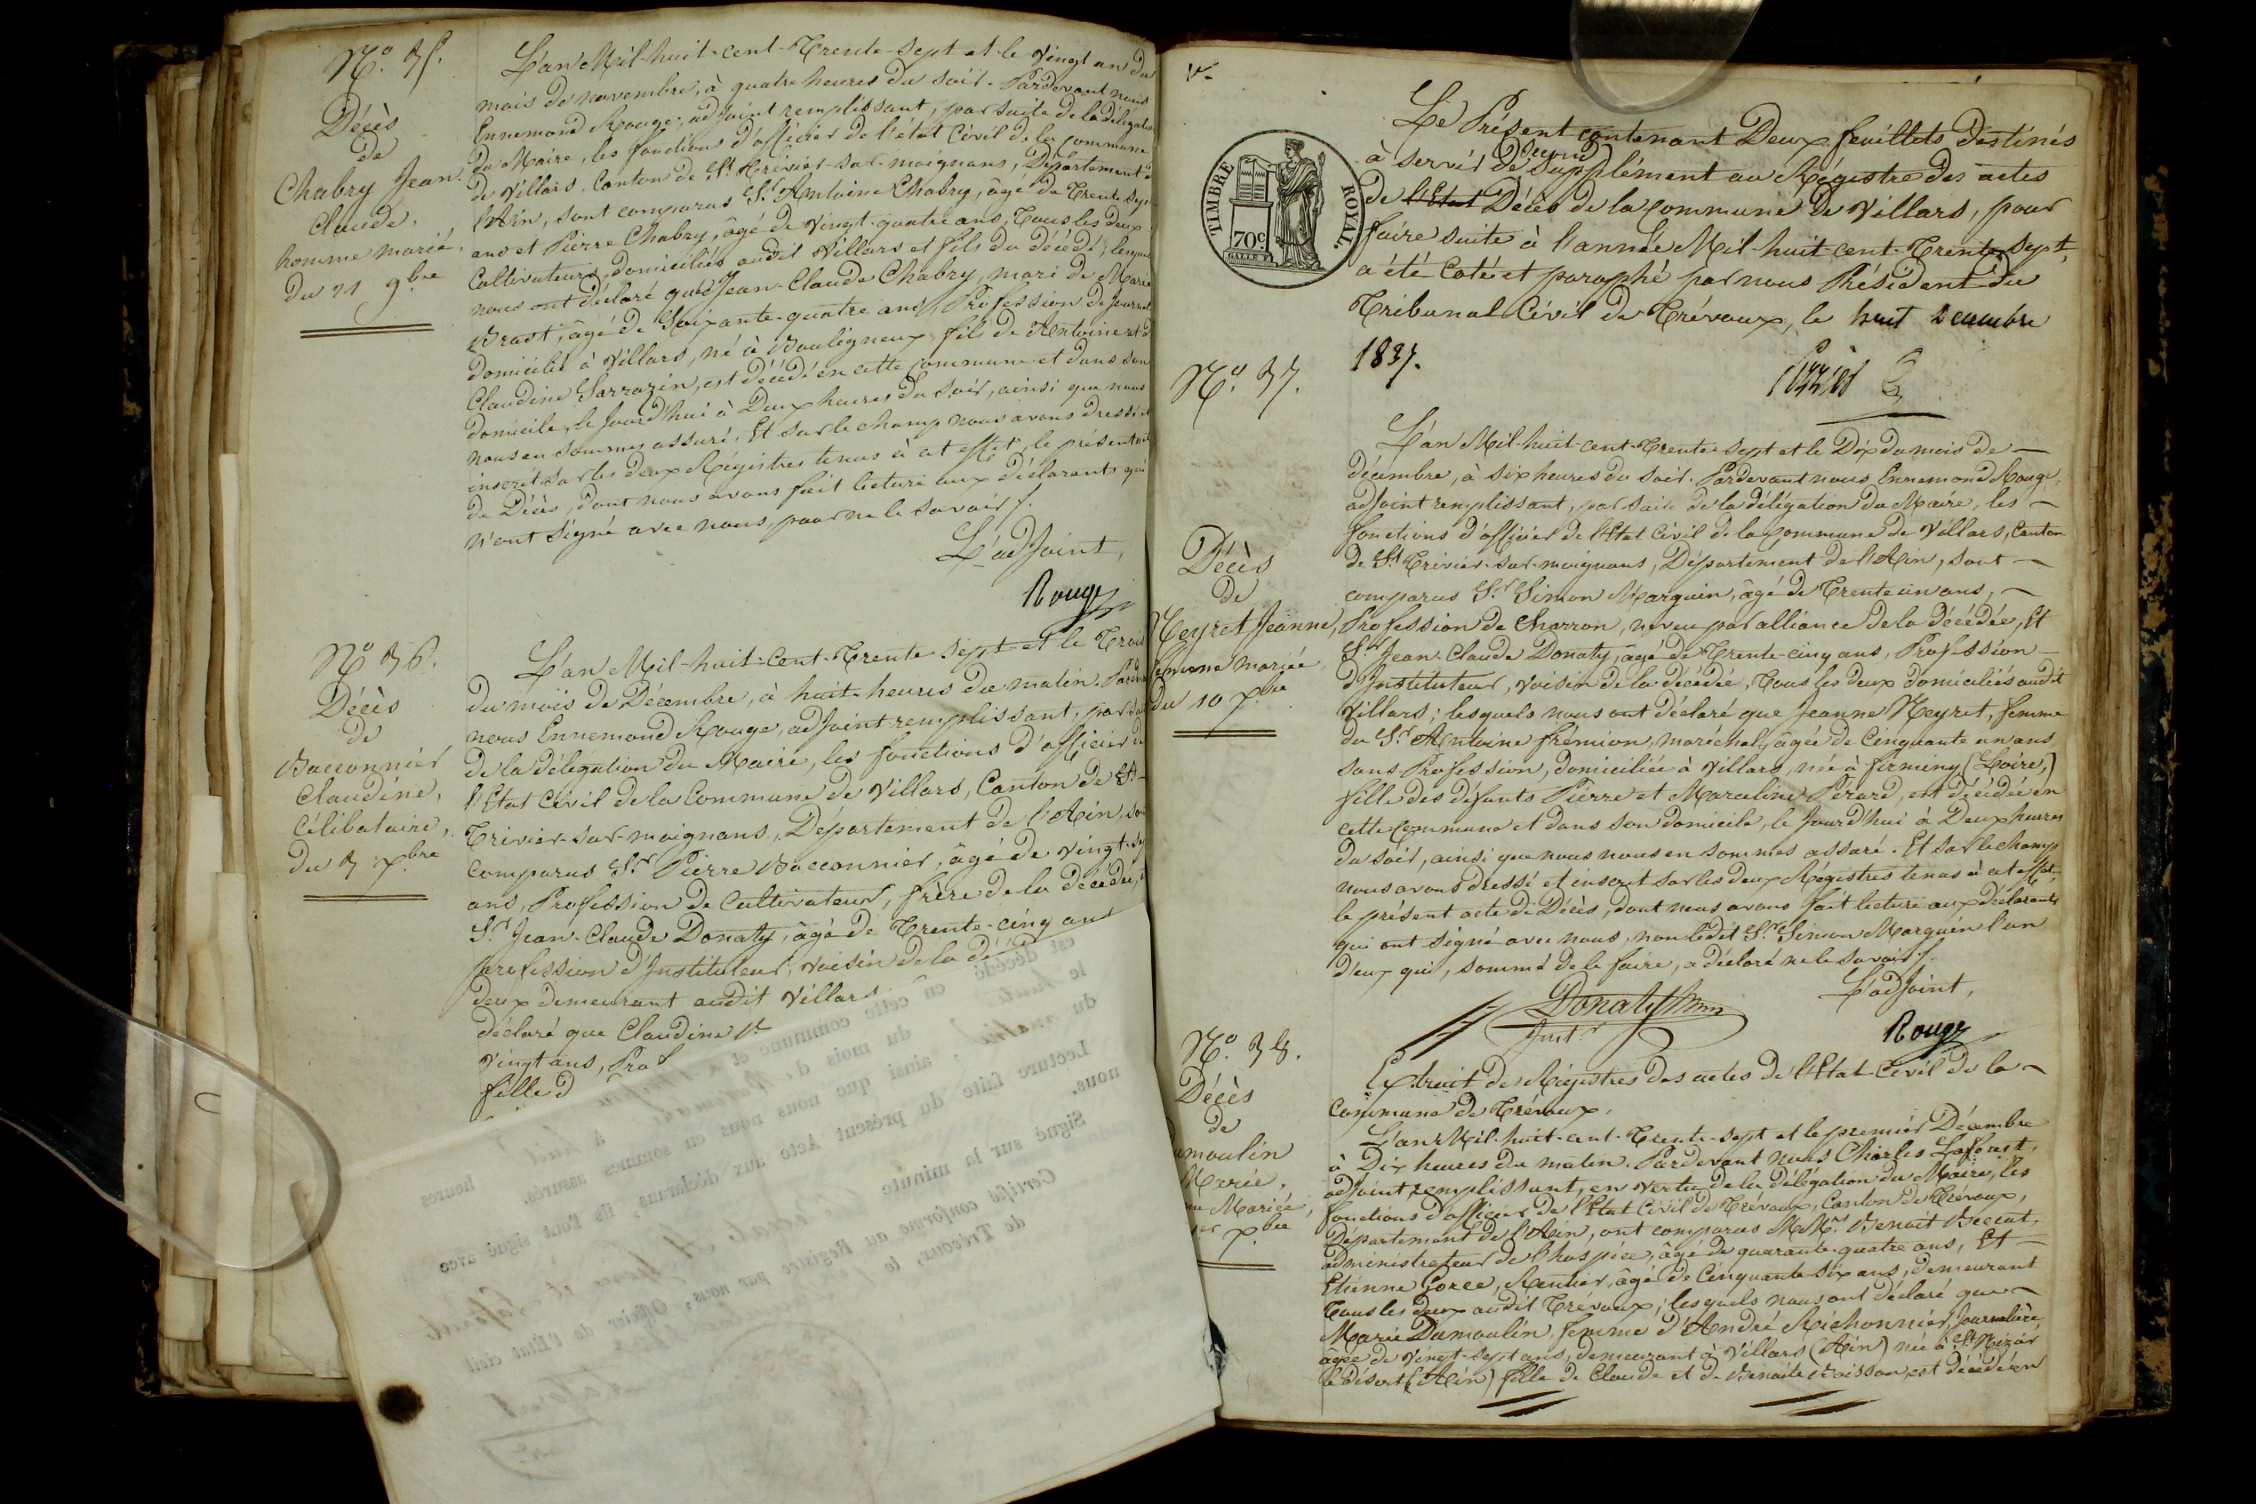 N.º 35.
Décès
de
Chabry Jean
Claude,
homme marié,
du 21 9.bre
L'an Mil-huit-cent-Trente-sept et le vingt un du
mois de novembre, à quatre heures du soir. Pardevant nous
Ennemond Rouge, adjoint remplissant, par suite de la délégation
du Maire, les fonctions d'officier de l'état Civil de la commune
de Villars, Canton de St. Trivier-sur-moignans, Département de
l'Ain, sont comparus Sr. Antoine Chabry, âgé de Trente sept
ans et Pierre Chabry, âgé de vingt-quatre ans, Tous les deux
Cultivateurs, domiciliés audit Villars et fils du décédé; lesquels
nous ont déclaré que Jean-Claude Chabry, mari de Marie
Brast, âgé de Soixante-quatre ans, Profession de Journal
domicilié à Villars, né à Bouligneux, fils de Antoine et de
Claudine Sarrazin, est décédé en cette commune et dans son
domicile, le Jourd'hui à Deux heures du soir, ainsi que nous
nous en sommes assuré. Et sur le champ nous avons dressé et
inscrit sur les deux Régistres tenus à cet effet, le présent acte
de Décès, dont nous avons fait lecture aux déclarants qui
n'ont signé avec nous, pour ne le savoir f.
L'adjoint,
Rouge
Nº 36.
Décès
de
Bacconnier
Claudine,
Célibataire,
du 3 x.bre
L'an Mil-huit-Cent-Trente-sept et le Trois
du mois de Décembre, à huit heures du matin. Pardev
nous Ennemond Rouge, adjoint remplissant, par sui
de la délégation du Maire, les fonctions d'officier de
l'Etat Civil de la Commune de Villars, Canton de St-
Trivier-sur-moignans, Département de l'Ain, so
comparus Sr. Pierre Bacconnier, âgé de vingt-
ans, Profession de Cultivateur, frère de la décédée,
Sr. Jean-Claude Donaty, âgé de Trente-cinq ans
profession d'Instituteur, voisin de la dé
deux demeurant audit Villars
déclaré que Claudine
vingt ans, Pro
fille d
est décédé en cette commune et
le du mois d à heures
du ; ainsi que nous nous en sommes assurés.
Lecture faite du présent Acte aux déclarans, ils l'ont signé avec
nous.
Signé sur la minute
Certifié conforme au Registre par nous, Officier de l'Etat civil
de Trévoux, le
Le Présent contenant Deux feuillets destinés
à servir de second supplément au Régistre des actes
de l'Etat Décès de la commune de Villars, pour
faire suite à l'année Mil-huit-cent-Trente-sept,
a été Coté et paraphé par nous Président du
Tribunal Civil de Trévoux, le huit Décembre
1837.
TIMBRE ROYAL
70c
N.º 37.
Décès
de
Neyret Jeanne,
femme mariée
du 10 x.bre
L'an Mil-huit-cent-Trente-sept et le Dix du mois de
décembre, à six heures du soir. Pardevant nous Ennemond Rouge,
adjoint remplissant, par suite de la délégation du Maire, les
fonctions d'officier de l'Etat Civil de la Commune de Villars, Canton
de St. Trivier-sur-moignans, Département de l'Ain, sont
comparus Sr. Simon Marguin, âgé de Trente un ans,
Profession de Charron, neveu par alliance de la décédée, Et
Sr. Jean-Claude Donaty, âgé de Trente-cinq ans, Profession
d'Instituteur, voisin de la décédée, Tous les deux domiciliés audit
Villars; lesquels nous ont déclaré que Jeanne Neyret, femme
du Sr. Antoine frémion, maréchal, âgée de Cinquante un ans
sans Profession, domiciliée à Villars, née à firminy (Loire,)
fille des défunts Pierre et Marceline Pérard, est décédée en
cette commune et dans son domicile, le Jourd'hui à Deux heures
du soir, ainsi que nous nous en sommes assuré. Et sur le champ
nous avons dressé et inscrit sur les deux Régistres tenus à cet effet,
le présent acte de Décès, dont nous avons fait lecture aux déclarants
qui ont signé avec nous, non ledit Sr. Simon Marguin l'un
d'eux qui, sommé de le faire, a déclaré ne le savoir f.
L'adjoint,
Donaty
Inst.r
Rouge
N.º 38.
Décès
de
umoulin
Marie,
Mariée,
er x.bre
Extrait des Régistres des actes de l'Etat-Civil de la
Commune de Trévoux.
L'an Mil-huit-cent-Trente-sept et le premier Décembre
à Dix heures du matin. Pardevant nous Charles Laforest,
adjoint remplissant, en vertu de la délégation du Maire, les
fonctions d'officier de l'Etat Civil de Trévoux, Canton de Trévoux,
Département de l'Ain, ont comparus M.Mrs. Benoit Beccat,
administrateur de l'hospice, âgé de quarante-quatre ans, Et
Etienne Force, Rentier, âgé de Cinquante-six ans, demeurant
Tous les deux audit Trévoux; lesquels nous ont déclaré que
Marie Dumoulin, femme d'André Richonnier, Journalière,
âgée de vingt-sept ans, demeurant à Villars (Ain) née à St. Nizier
le désert (Ain) fille de Claude et de Benoite Boisson, est décédée en